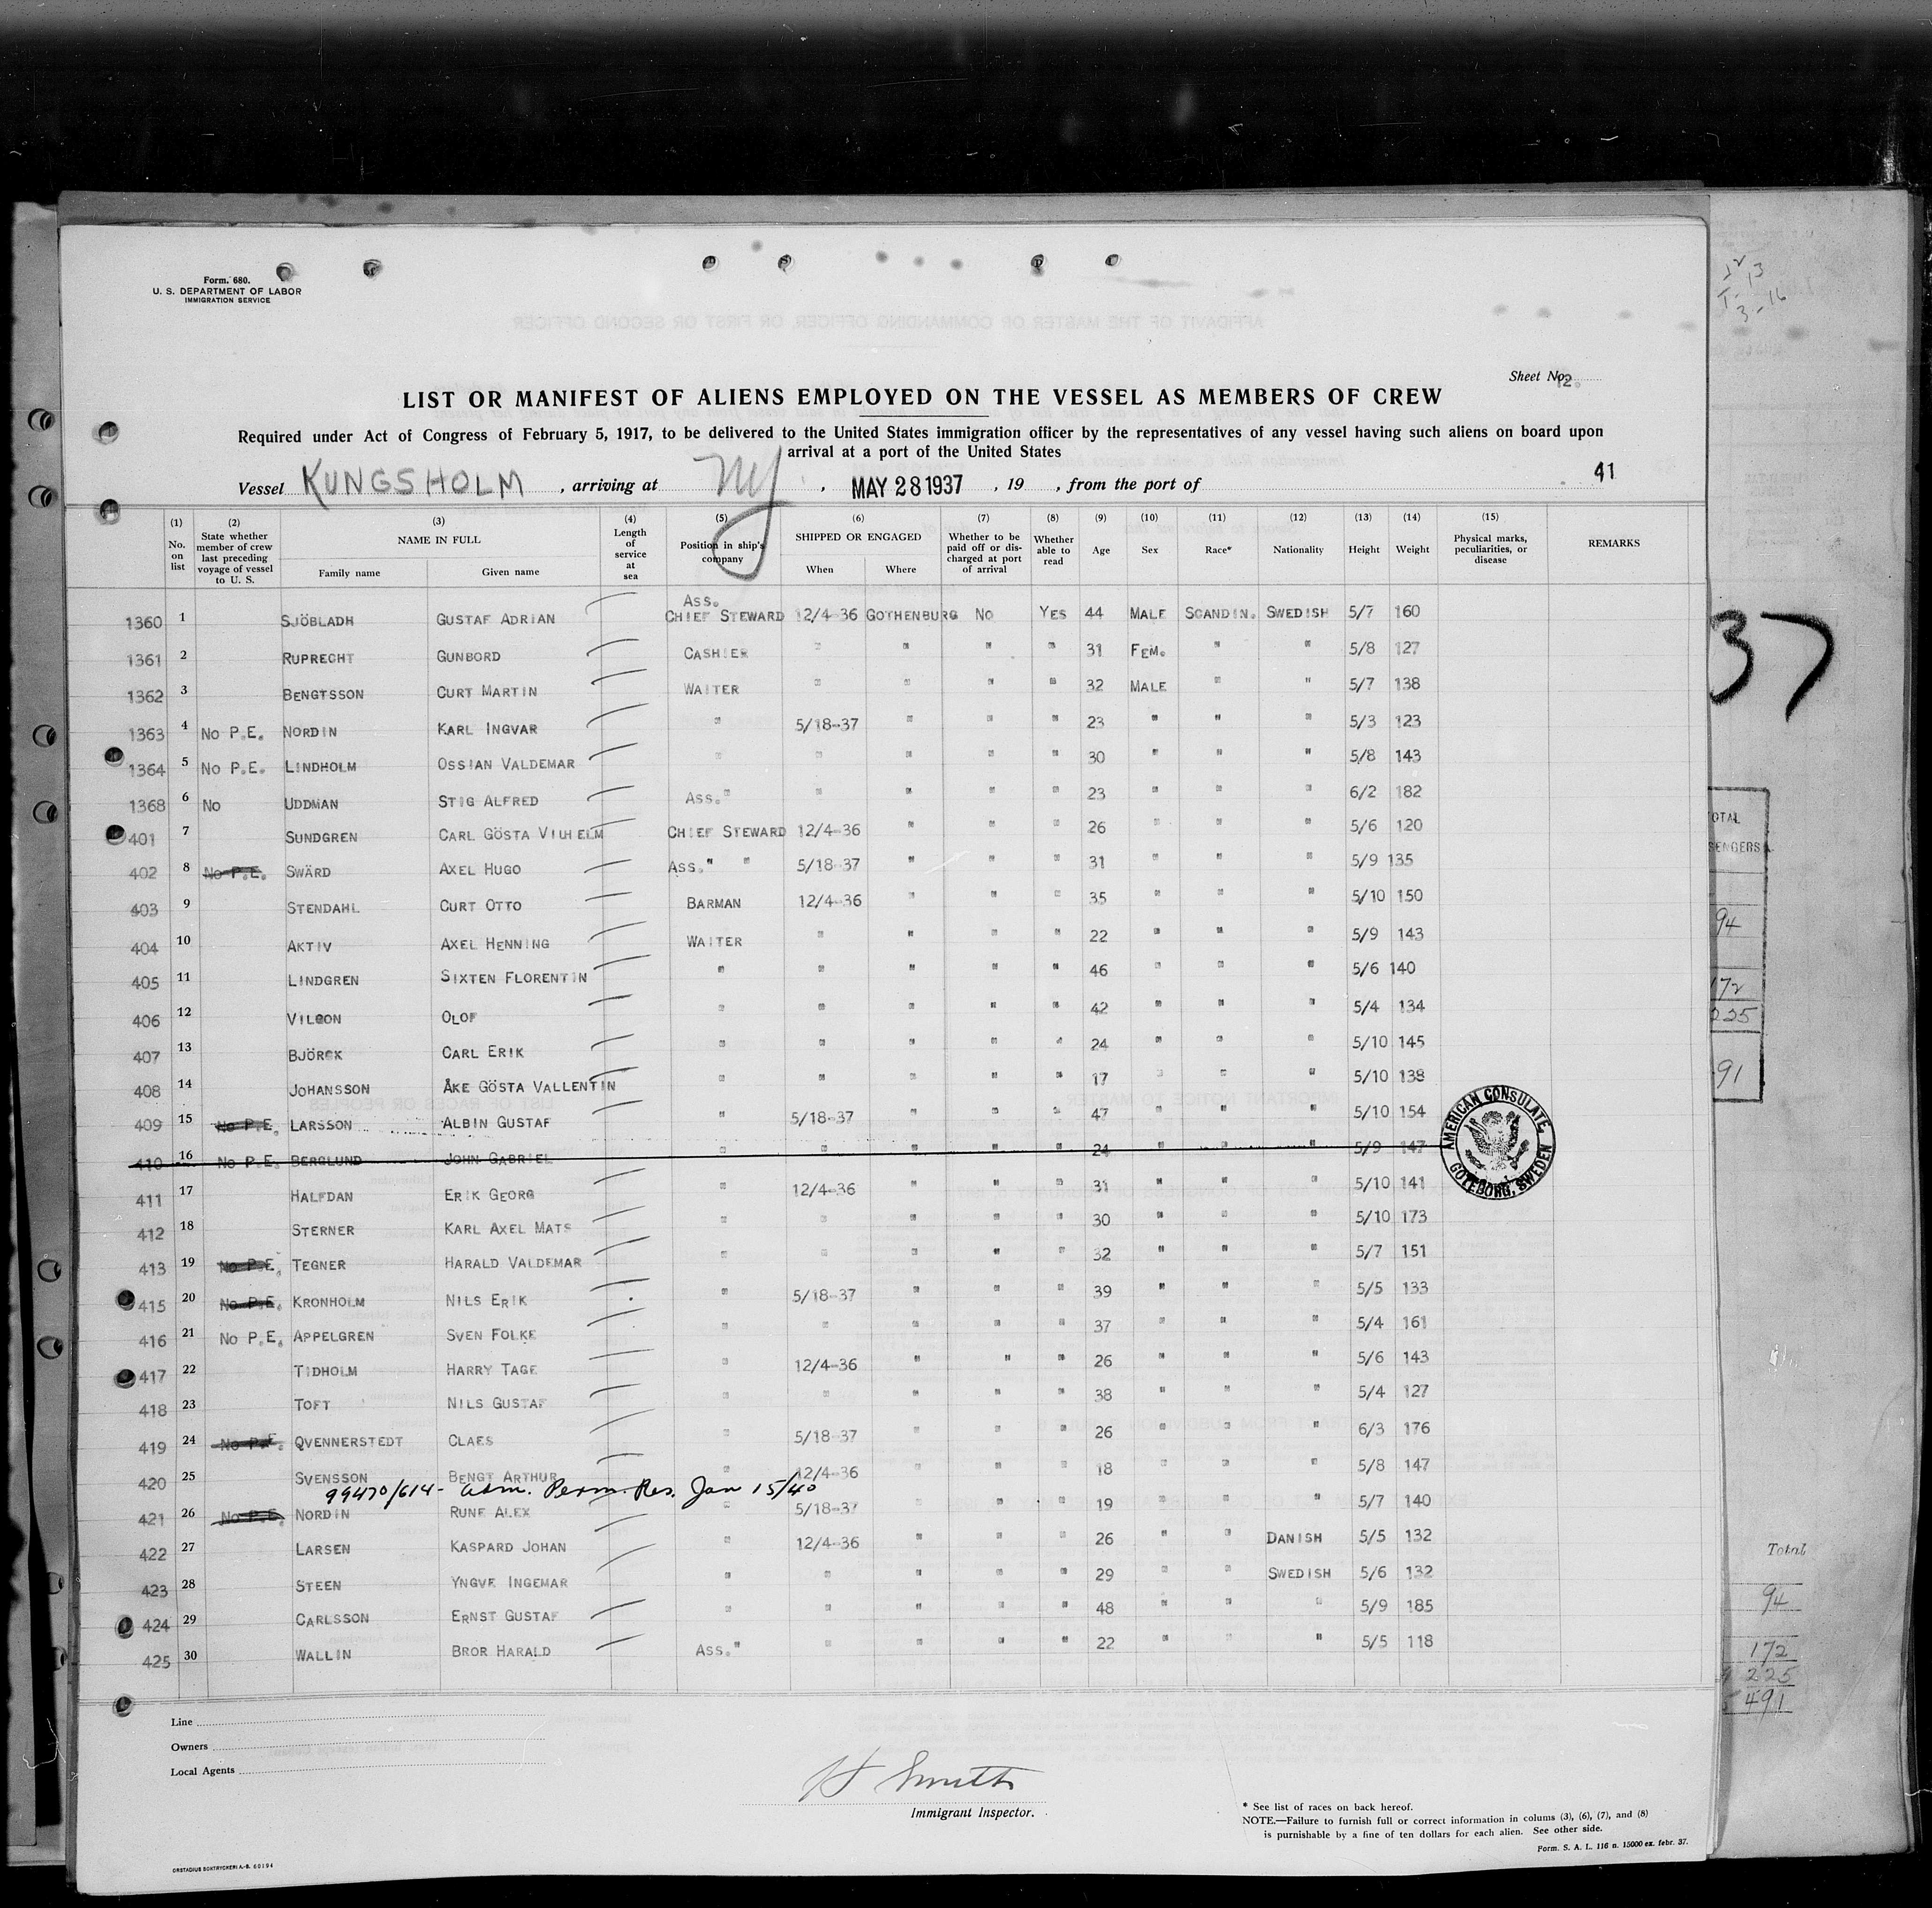 Form. 680.
U. S. DEPARTMENT OF LABOR
IMMIGRATION SERVICE
Sheet No. 12.
LIST OR MANIFEST OF ALIENS EMPLOYED ON THE VESSEL AS MEMBERS OF CREW
Required under Act of Congress of February 5, 1917, to be delivered to the United States immigration officer by the representatives of any vessel having such aliens on board upon
arrival at a port of the United States
41
Vessel KUNGSHOLM , arriving at NY , MAY 28 1937 , 19 , from the port of
(1) No. on list (2) State whether member of crew last preceding voyage of vessel to U. S. (3) NAME IN FULL Family name Given name (4) Length of service at sea (5) Position in ship's company (6) SHIPPED OR ENGAGED When Where (7) Whether to be paid off or discharged at port of arrival (8) Whether able to read (9) Age (10) Sex (11) Race* (12) Nationality (13) Height (14) Weight (15) Physical marks, peculiarities, or disease REMARKS
1360 1 SJÖBLADH GUSTAF ADRIAN ASS. CHIEF STEWARD 12/4-36 GOTHENBURG NO YES 44 MALE SCANDIN. SWEDISH 5/7 160
1361 2 RUPRECHT GUNBORD CASHIER " " " " 31 FEM. " " 5/8 127
1362 3 BENGTSSON CURT MARTIN WAITER " " " " 32 MALE " " 5/7 138
1363 4 NO P.E. NORDIN KARL INGVAR " 5/18-37 " " " 23 " " " 5/3 123
1364 5 NO P.E. LINDHOLM OSSIAN VALDEMAR " " " " " 30 " " " 5/8 143
1368 6 NO UDDMAN STIG ALFRED ASS." " " " " 23 " " " 6/2 182
401 7 SUNDGREN CARL GÖSTA VILHELM CHIEF STEWARD 12/4-36 " " " 26 " " " 5/6 120
402 8 NO P.E. SWÄRD AXEL HUGO ASS." " 5/18-37 " " " 31 " " " 5/9 135
403 9 STENDAHL CURT OTTO BARMAN 12/4-36 " " " 35 " " " 5/10 150
404 10 AKTIV AXEL HENNING WAITER " " " " 22 " " " 5/9 143
405 11 LINDGREN SIXTEN FLORENTIN " " " " " 46 " " " 5/6 140
406 12 VILGON OLOF " " " " " 42 " " " 5/4 134
407 13 BJÖRCK CARL ERIK " " " " " 24 " " " 5/10 145
408 14 JOHANSSON ÅKE GÖSTA VALLENTIN " " " " " 17 " " " 5/10 138
409 15 NO P.E. LARSSON ALBIN GUSTAF " 5/18-37 " " " 47 " " " 5/10 154
410 16 NO P.E. BERGLUND JOHN GABRIEL " " " " " 24 " " " 5/9 147
AMERICAN CONSULATE, GÖTEBORG, SWEDEN
411 17 HALFDAN ERIK GEORG " 12/4-36 " " " 31 " " " 5/10 141
412 18 STERNER KARL AXEL MATS " " " " " 30 " " " 5/10 173
413 19 NO P.E. TEGNER HARALD VALDEMAR " " " " " 32 " " " 5/7 151
415 20 NO P.E. KRONHOLM NILS ERIK " 5/18-37 " " " 39 " " " 5/5 133
416 21 NO P.E. APPELGREN SVEN FOLKE " " " " " 37 " " " 5/4 161
417 22 TIDHOLM HARRY TAGE " 12/4-36 " " " 26 " " " 5/6 143
418 23 TOFT NILS GUSTAF " " " " " 38 " " " 5/4 127
419 24 NO P.E. QVENNERSTEDT CLAES " 5/18-37 " " " 26 " " " 6/3 176
420 25 SVENSSON BENGT ARTHUR " 12/4-36 " " " 18 " " " 5/8 147
99470/614 - adm. Perm. Res. Jan 15/40
421 26 NO P.E. NORDIN RUNE ALEX " 5/18-37 " " " 19 " " " 5/7 140
422 27 LARSEN KASPARD JOHAN " 12/4-36 " " " 26 " " DANISH 5/5 132
423 28 STEEN YNGVE INGEMAR " " " " " 29 " " SWEDISH 5/6 132
424 29 CARLSSON ERNST GUSTAF " " " " " 48 " " " 5/9 185
425 30 WALLIN BROR HARALD ASS." " " " " 22 " " " 5/5 118
Line
Owners
Local Agents
H Smith
Immigrant Inspector.
* See list of races on back hereof.
NOTE.—Failure to furnish full or correct information in colums (3), (6), (7), and (8)
is punishable by a fine of ten dollars for each alien. See other side.
Form. S. A. L. 116 n. 15000 ex. febr. 37.
ORSTADIUS BOKTRYCKERI A.-B. 60194
37
94
172
225
91
Total
94
172
225
491